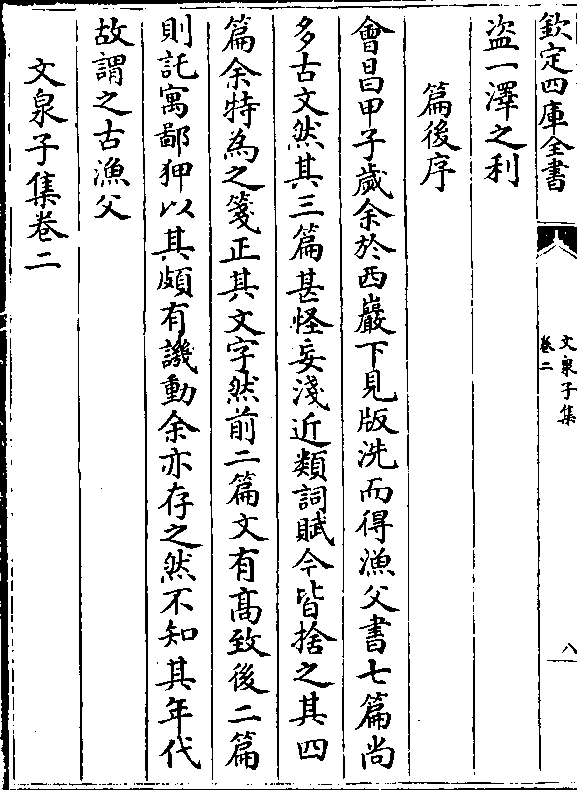 欽定四庫全書
文泉子集
卷二
八
盗一澤之利
篇後序
會昌甲子歲余於西巖下見版洗而得漁父書七篇尚
多古文然其三篇甚怪妄淺近類詞賦今皆捨之其四
篇余特為之箋正其文字然前二篇文有髙致後二篇
則託寓鄙狎以其頗有譏動余亦存之然不知其年代
故謂之古漁父
文泉子集卷二